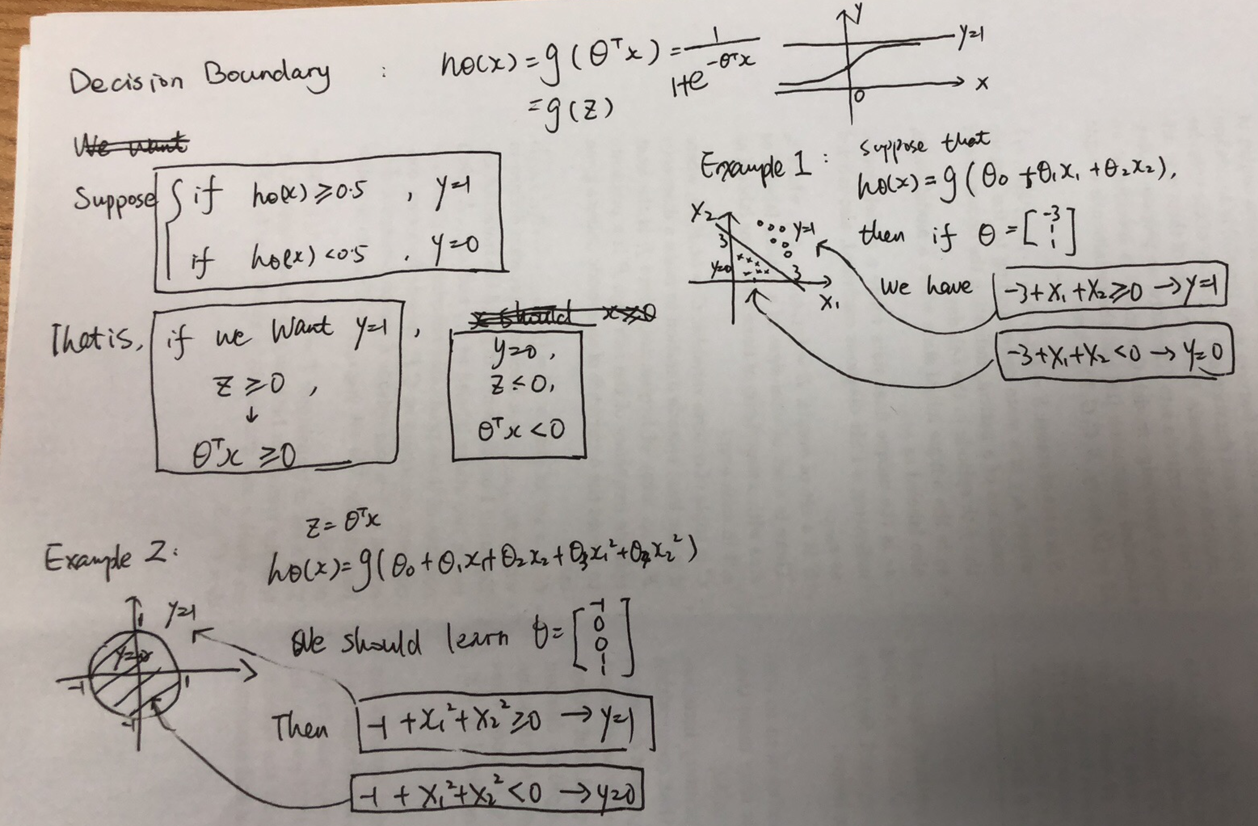 Decision Boundary : hθ(x) = g(θᵀx) = 1/(1+e^(-θᵀx))
= g(z)
y
y=1
x
0
We want
Suppose { if hθ(x) ≥ 0.5 , y=1
if hθ(x) < 0.5 , y=0
That is, if we want y=1 ,
z ≥ 0 ,
↓
θᵀx ≥ 0
x should x≥0
y=0 ,
z < 0,
θᵀx < 0
Example 1 : suppose that
hθ(x) = g(θ₀ + θ₁x₁ + θ₂x₂),
then if θ = [-3 1 1]
we have -3+x₁+x₂ ≥ 0 → y=1
-3+x₁+x₂ < 0 → y=0
x₂
3
y=1
y=0
3
x₁
z = θᵀx
Example 2: hθ(x) = g(θ₀ + θ₁x₁ + θ₂x₂ + θ₃x₁² + θ₄x₂²)
We should learn θ = [-1 0 0 1 1]
Then -1 + x₁² + x₂² ≥ 0 → y=1
-1 + x₁² + x₂² < 0 → y=0
1
y=1
y=0
-1
1
-1